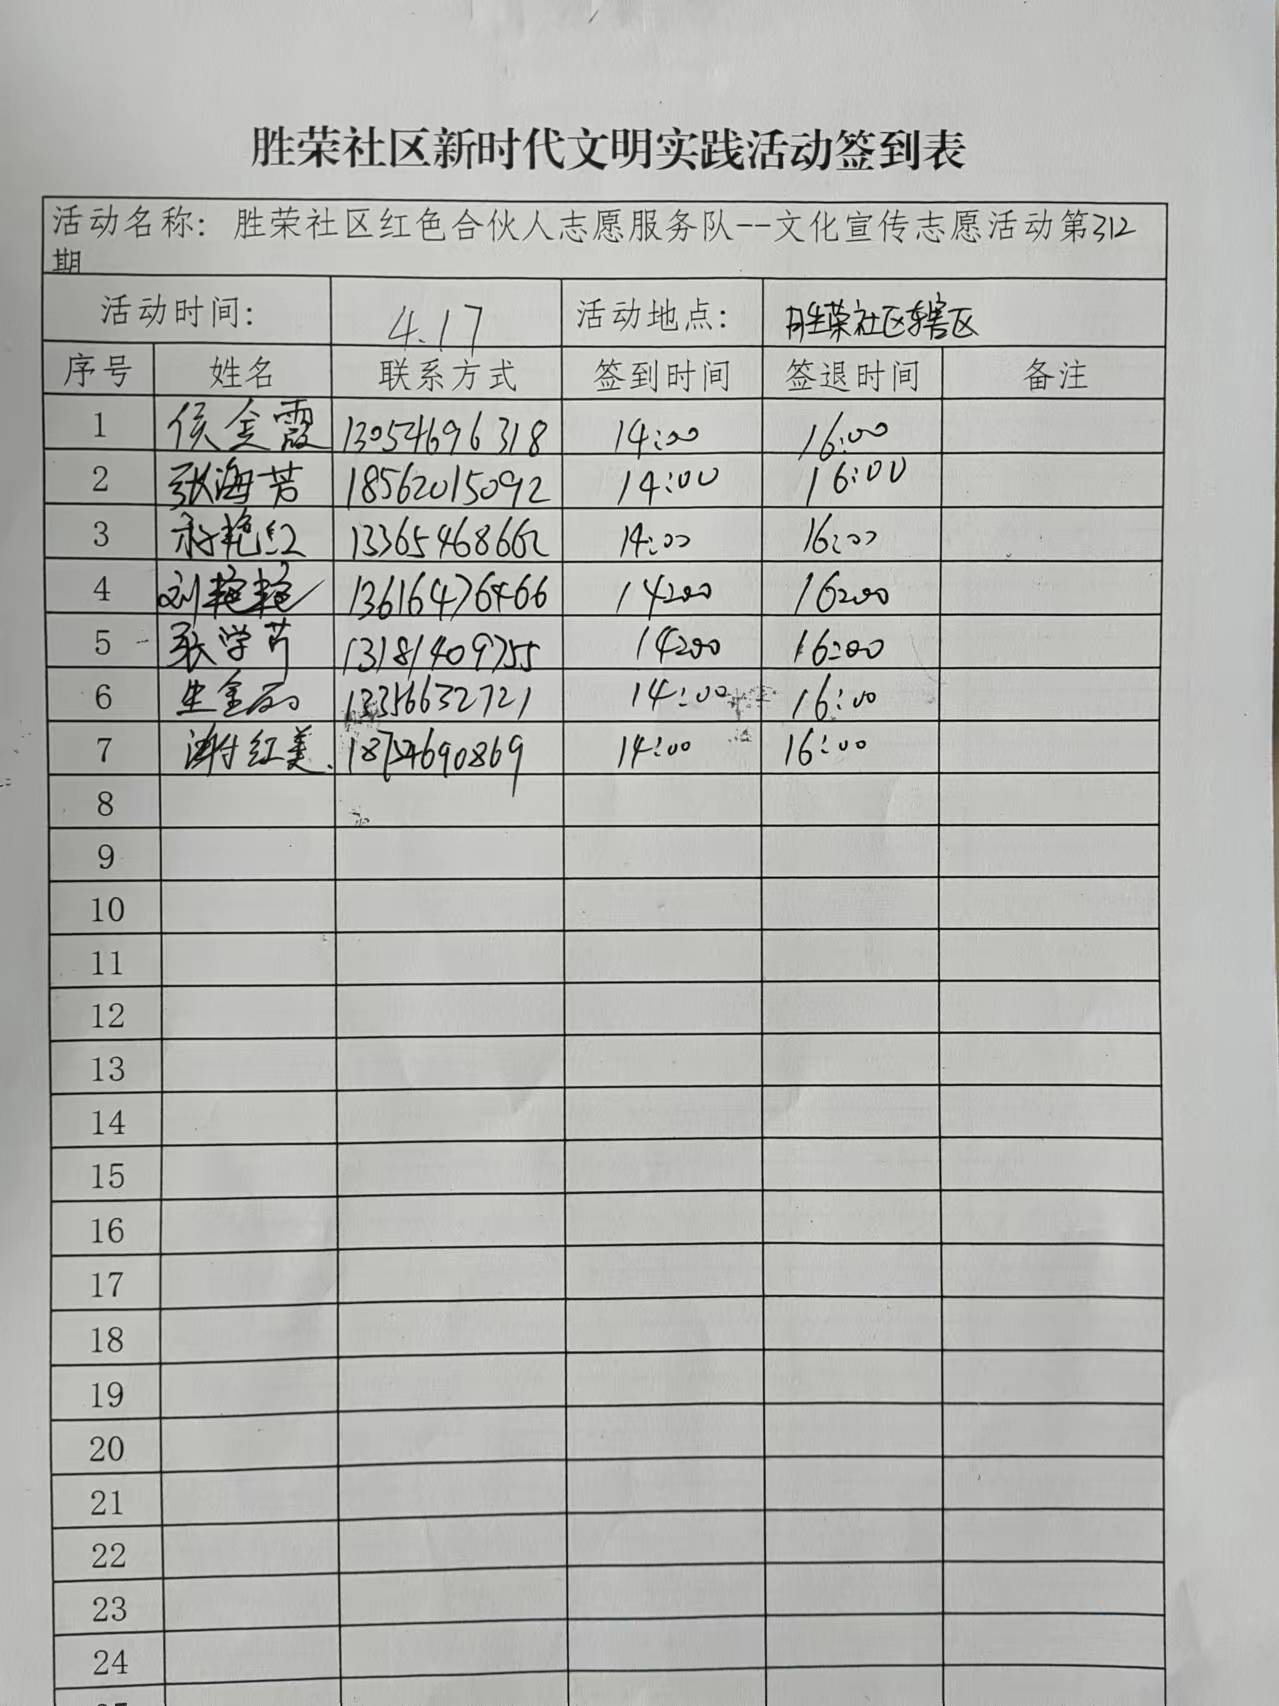 胜荣社区新时代文明实践活动签到表
活动名称：胜荣社区红色合伙人志愿服务队--文化宣传志愿活动第312
期
活动时间： 4.17 活动地点： 胜荣社区辖区
序号 姓名 联系方式 签到时间 签退时间 备注
1 侯金霞 13054696318 14:00 16:00
2 张海芳 18562015092 14:00 16:00
3 艳红 13365468662 14:00 16:00
4 刘艳艳 13616476466 14:00 16:00
5 耿学芹 13181409755 14:00 16:00
6 生金 13356632721 14:00 16:00
7 谢红美 14:00 16:00
8
9
10
11
12
13
14
15
16
17
18
19
20
21
22
23
24